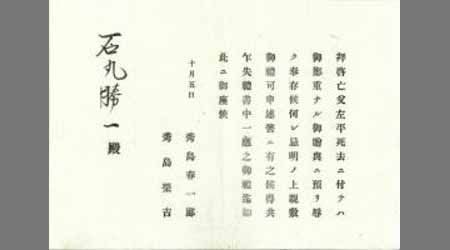 拜啓亡父左平死去ニ付テハ
御鄭重ナル御贈與ニ預リ辱
ク奉存候何レ忌明ノ上親敷
御禮可申述筈ニ有之候得共
乍失禮書中一應之御禮迄如
此ニ御座候
十月五日
秀島春一郎
秀島榮吉
石丸勝一殿